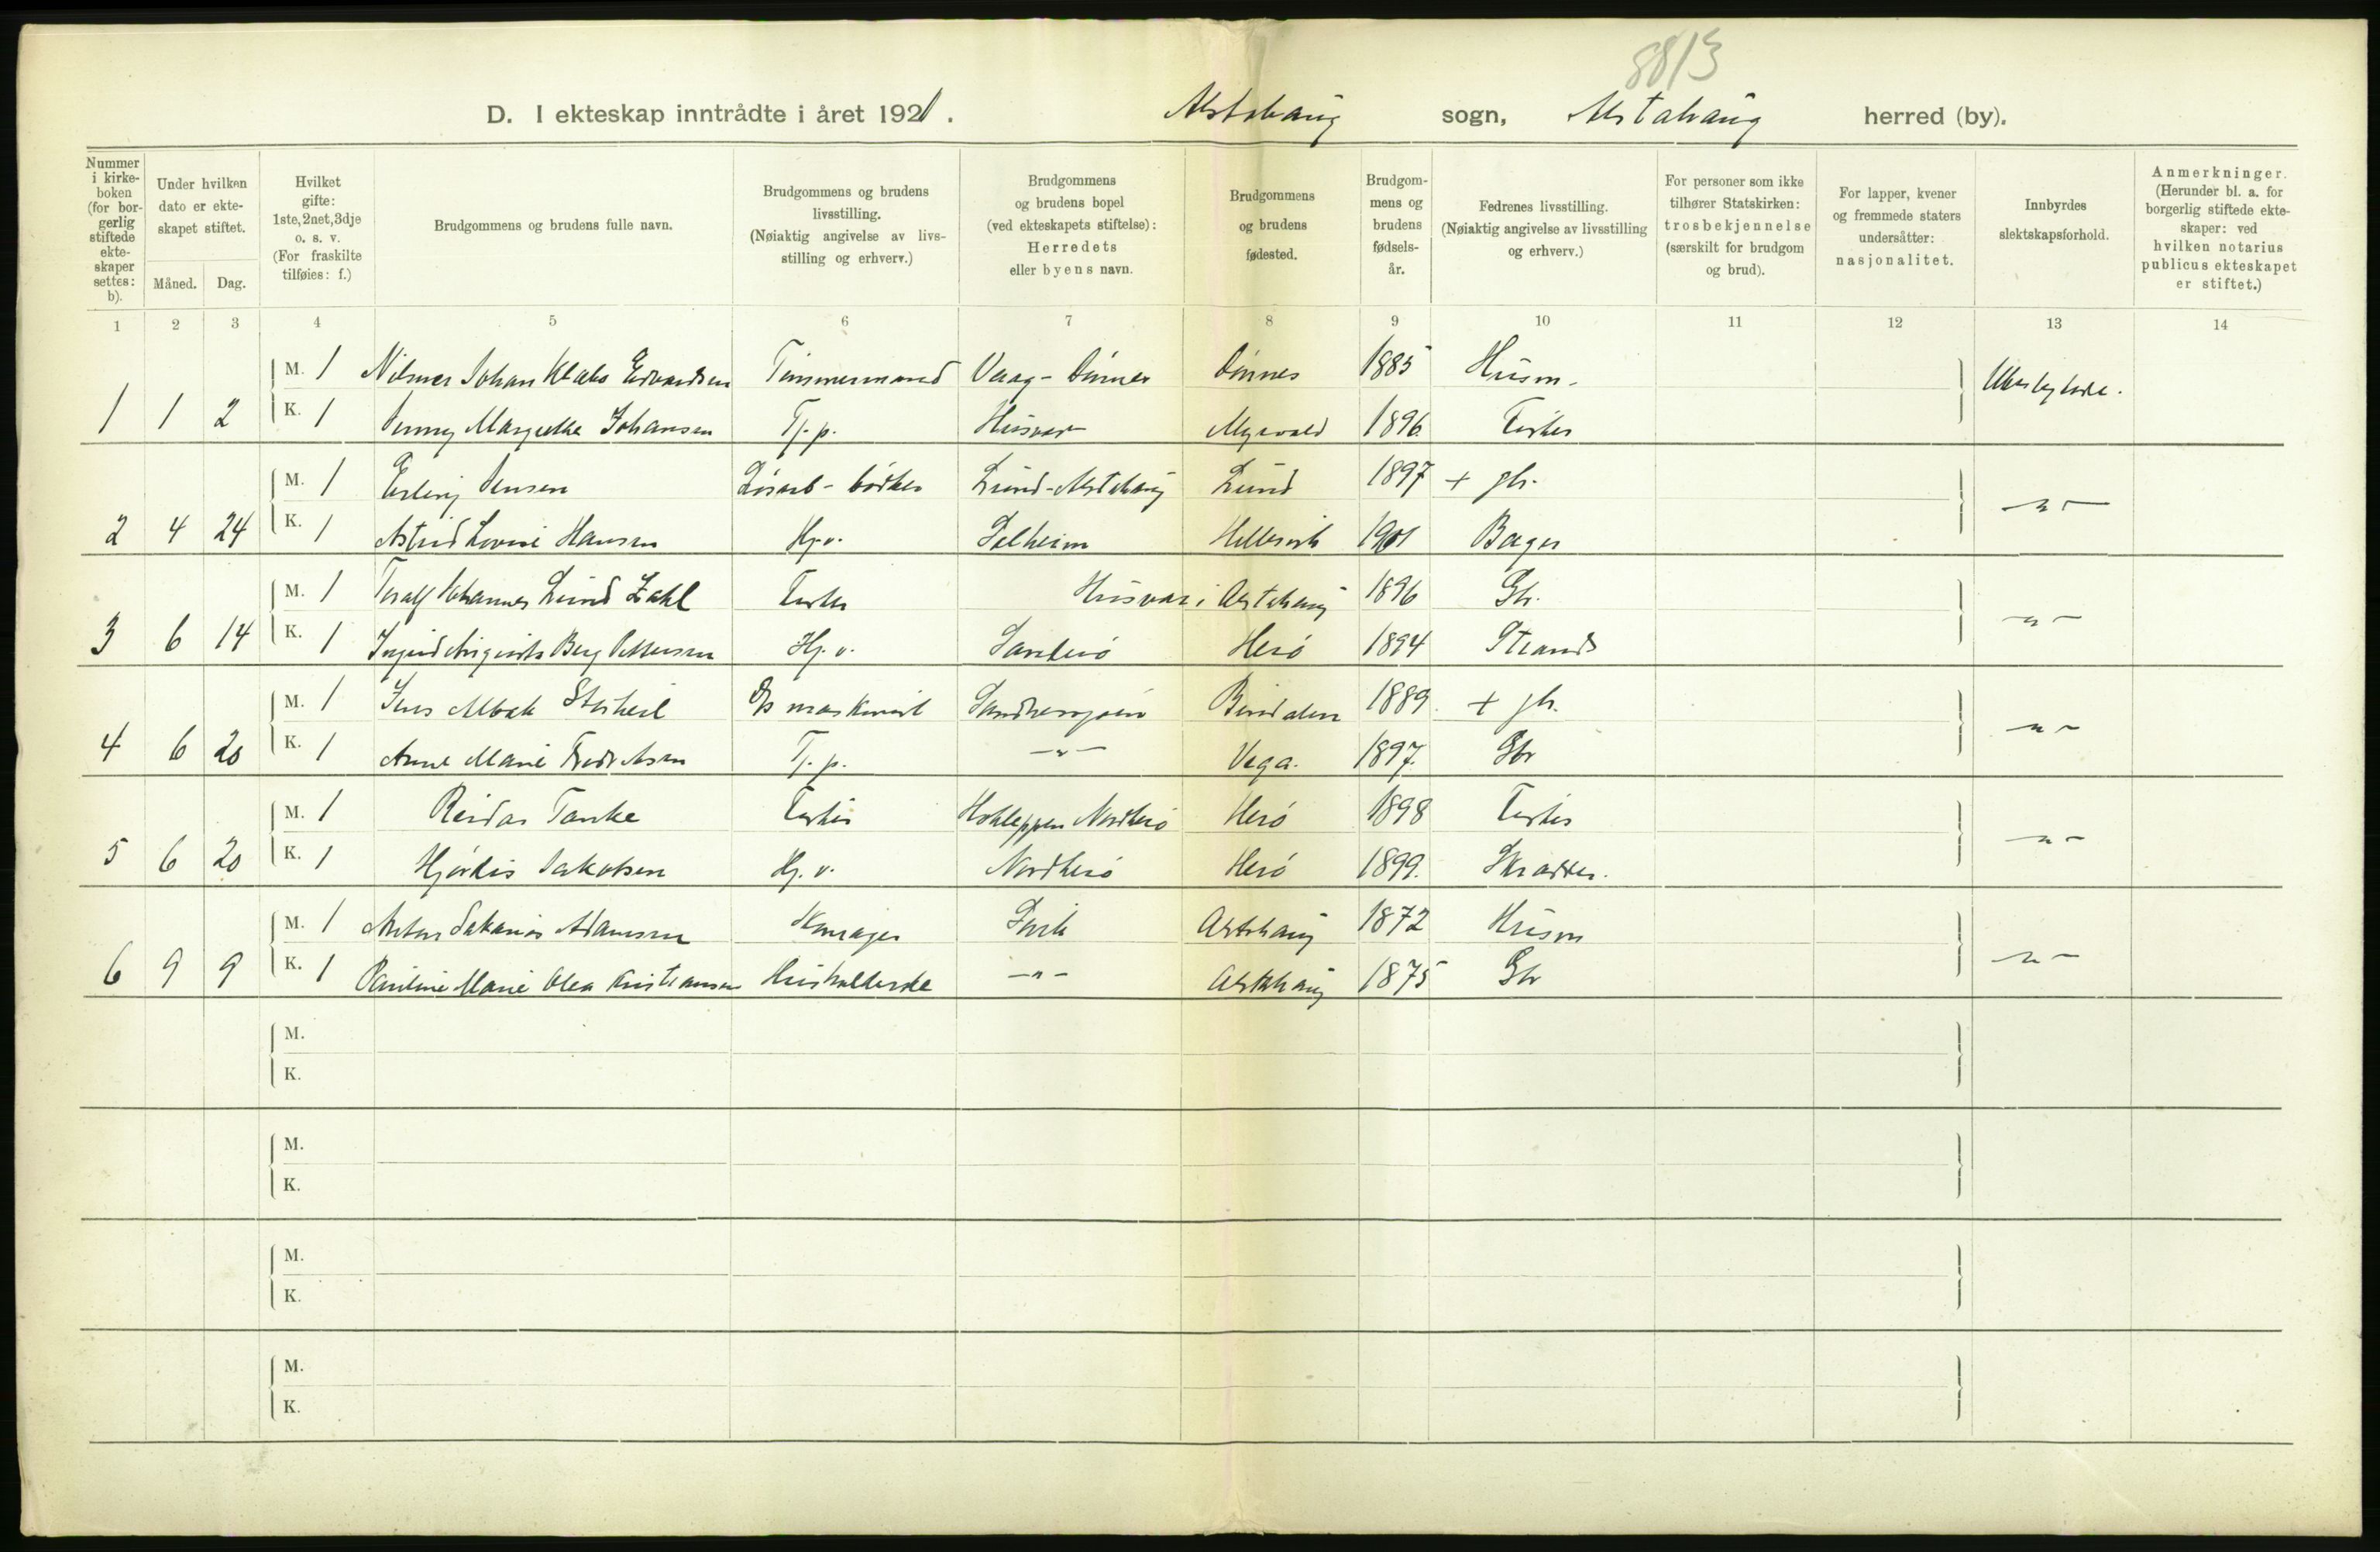 8813
D. I ekteskap inntrådte i året 1921. Alstahaug sogn, Alstahaug herred (by).
Nummer i kirkeboken (for borgerlig stiftede ekteskaper settes: b).
Under hvilken dato er ekteskapet stiftet.
Måned. Dag.
Hvilket gifte: 1ste, 2net, 3dje o. s. v. (For fraskilte tilføies: f.)
Brudgommens og brudens fulle navn.
Brudgommens og brudens livsstilling. (Nøiaktig angivelse av livsstilling og erhverv.)
Brudgommens og brudens bopel (ved ekteskapets stiftelse): Herredets eller byens navn.
Brudgommens og brudens fødested.
Brudgommens og brudens fødselsår.
Fedrenes livsstilling. (Nøiaktig angivelse av livsstilling og erhverv.)
For personer som ikke tilhører Statskirken: trosbekjennelse (særskilt for brudgom og brud).
For lapper, kvener og fremmede staters undersåtter: nasjonalitet.
Innbyrdes slektskapsforhold.
Anmerkninger. (Herunder bl. a. for borgerlig stiftede ekteskaper: ved hvilken notarius publicus ekteskapet er stiftet.)
1 2 3 4 5 6 7 8 9 10 11 12 13 14
M. 1 Johan Edvardsen Tømmermand Vaag - Dønnes Dønnes 1885 Husm. Ubeslektede.
1 1 2 K. 1 Jenny Margrethe Johansen Tj. p. Husvær 1896 Fisker
M. 1 Erling Jensen Løsarb - bødker Lund - Alstahaug Lund 1897 + gbr.
2 4 24 K. 1 Astrid Hansen Hj. v. Solheim 1901 Bager - " -
M. 1 Toralf Johannes Lund Zahl Fisker Husvær i Alstahaug 1896 Gbr.
3 6 14 K. 1 Berg Pettersen Hj. v. Sørherø Herø 1894 Strands - " -
M. 1 Jens maskinist Sandnessjøen Bindalen 1889 + gbr.
4 6 20 K. 1 Anne Marie Fredriksen Tj. p. - " - Vega. 1897. Gbr - " -
M. 1 Reidar Tanke Fisker Nordherø Herø 1898 Fisker
5 6 20 K. 1 Hjørdis Jakobsen Hj. v. Nordherø Herø 1899. Skrædder. - " -
M. 1 Anton Sakarias Adamsen Alstahaug 1872 Husm
6 9 9 K. 1 Pauline Marie Olea Kristiansen Husholderske - " - Alstahaug 1875 Gbr - " -
M.
K.
M.
K.
M.
K.
M.
K.